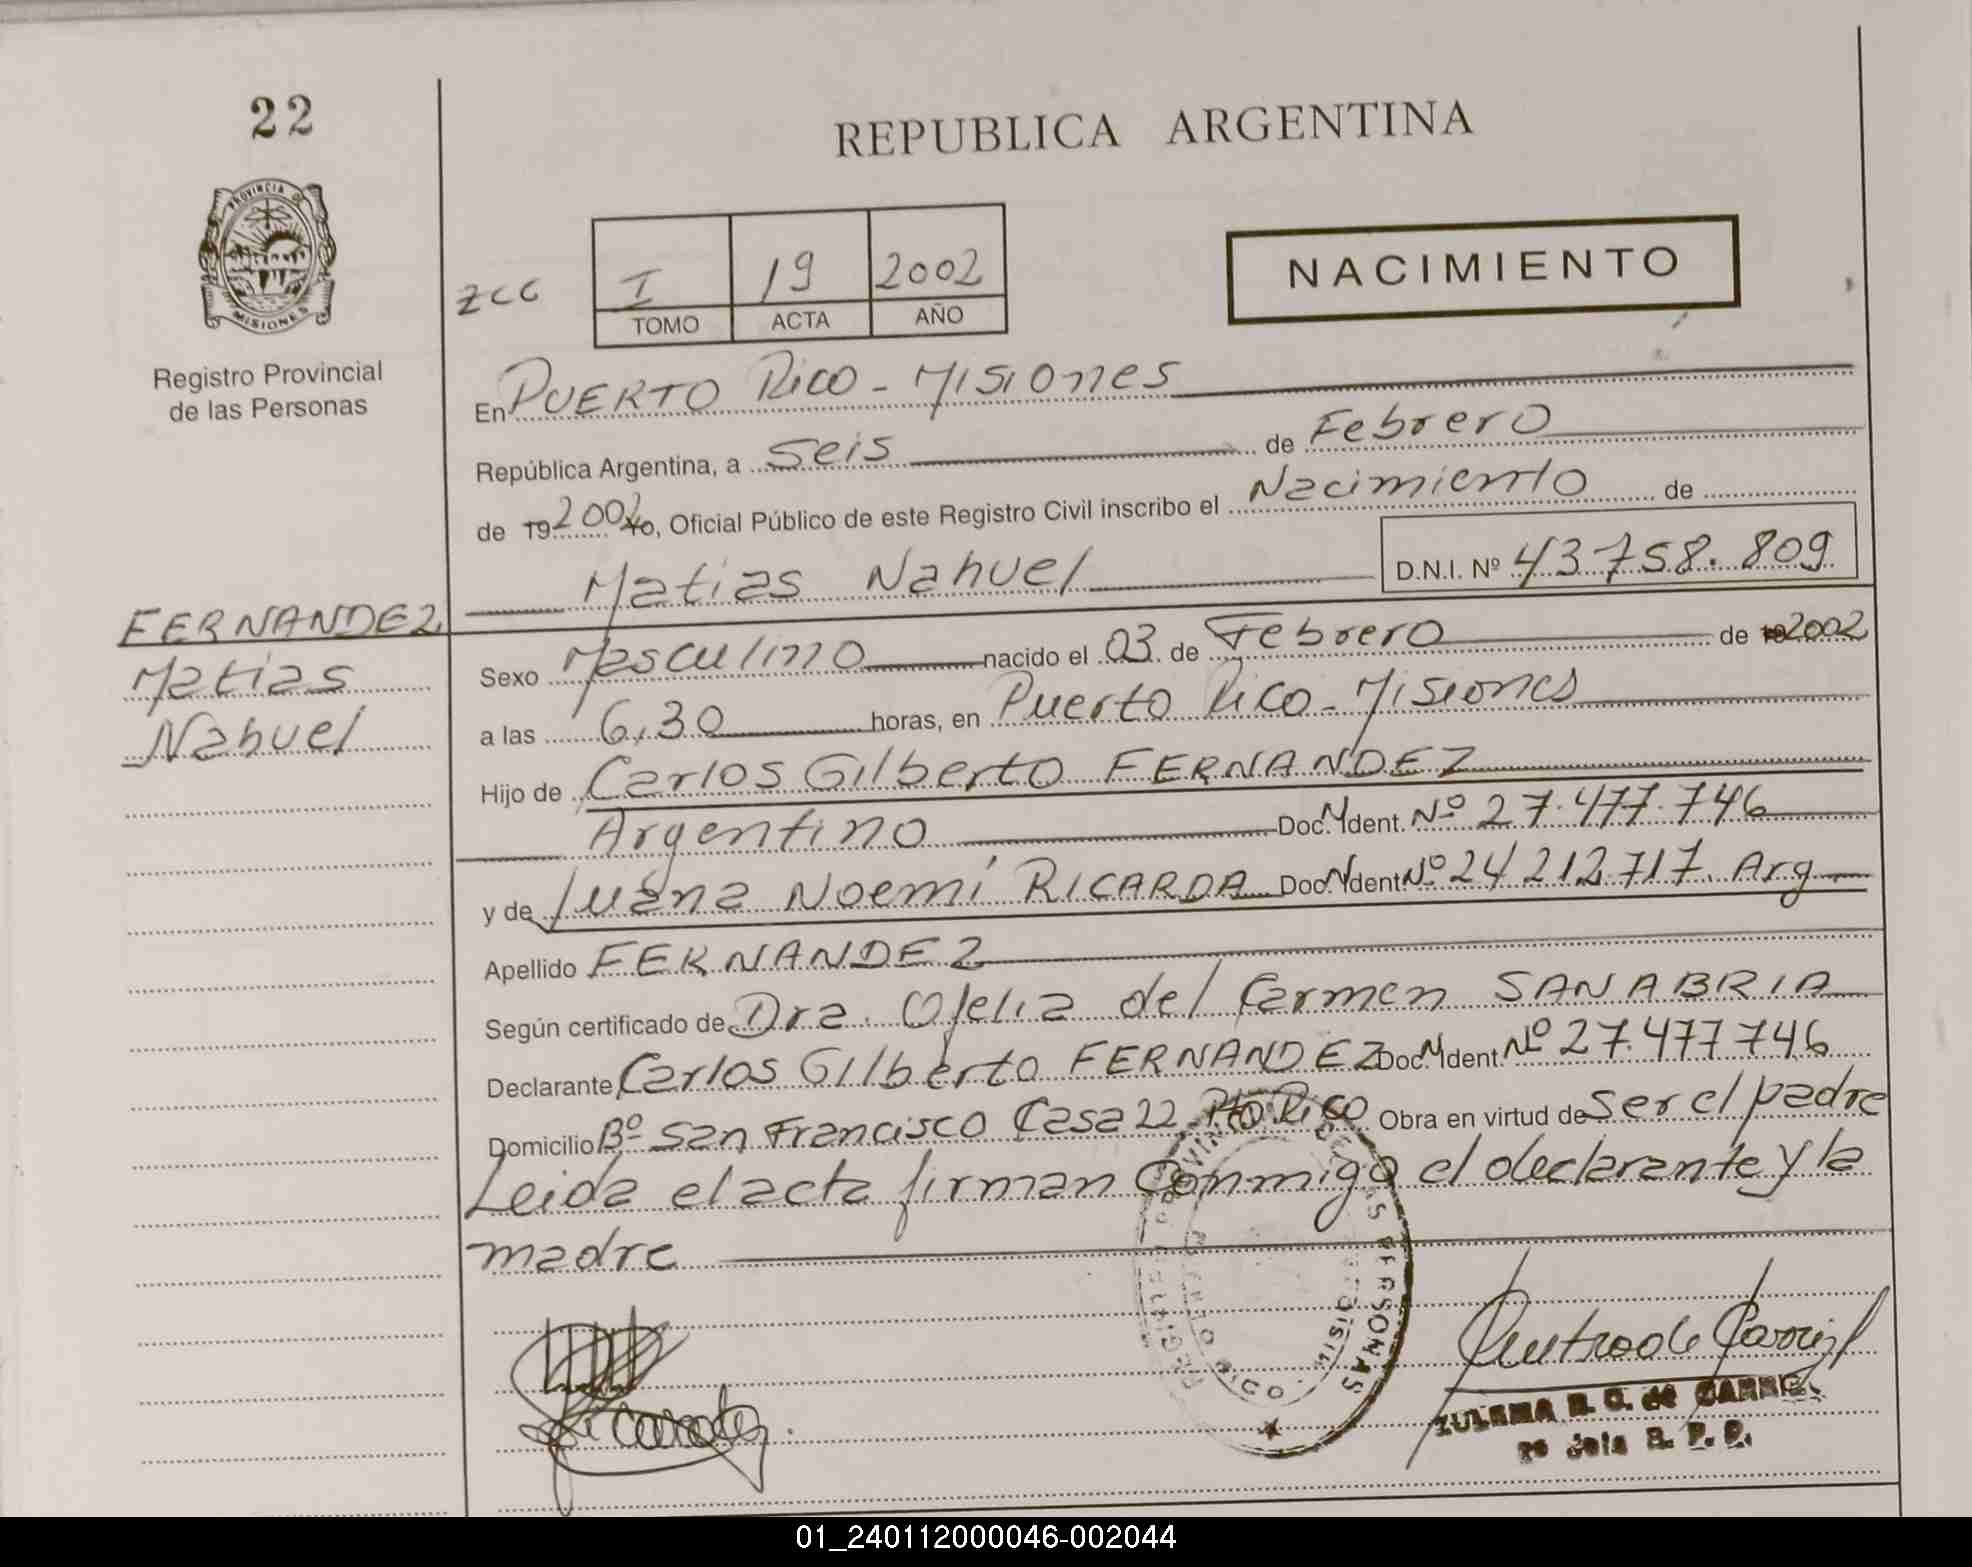 22
REPUBLICA ARGENTINA
PROVINCIA DE
MISIONES
Registro Provincial
de las Personas
ZCC
I 19 2002
TOMO ACTA AÑO
NACIMIENTO
En PUERTO Rico - Misiones
República Argentina, a Seis de Febrero
de 19 2002 Yo, Oficial Público de este Registro Civil inscribo el Nacimiento de
Matias Nahuel D.N.I. Nº 43.758.809
FERNANDEZ
Matias
Nahuel
Sexo Masculino nacido el 03 de Febrero de 19 2002
a las 6,30 horas, en Puerto Rico - Misiones
Hijo de Carlos Gilberto FERNANDEZ
Argentino Doc. Ident. Nº 27.477.746
y de Juana Noemí RICARDA Doc. Ident. Nº 24.212.717. Arg
Apellido FERNANDEZ
Según certificado de Dra. Ofelia del Carmen SANABRIA
Declarante Carlos Gilberto FERNANDEZ Doc. Ident. Nº 27.477.746
Domicilio Bº San Francisco Casa 22 Pto Rico Obra en virtud de ser el padre
Leida el acta firman conmigo el declarante y la
madre
PERSONAS
ZULEMA de
R. P. P.
01_240112000046-002044